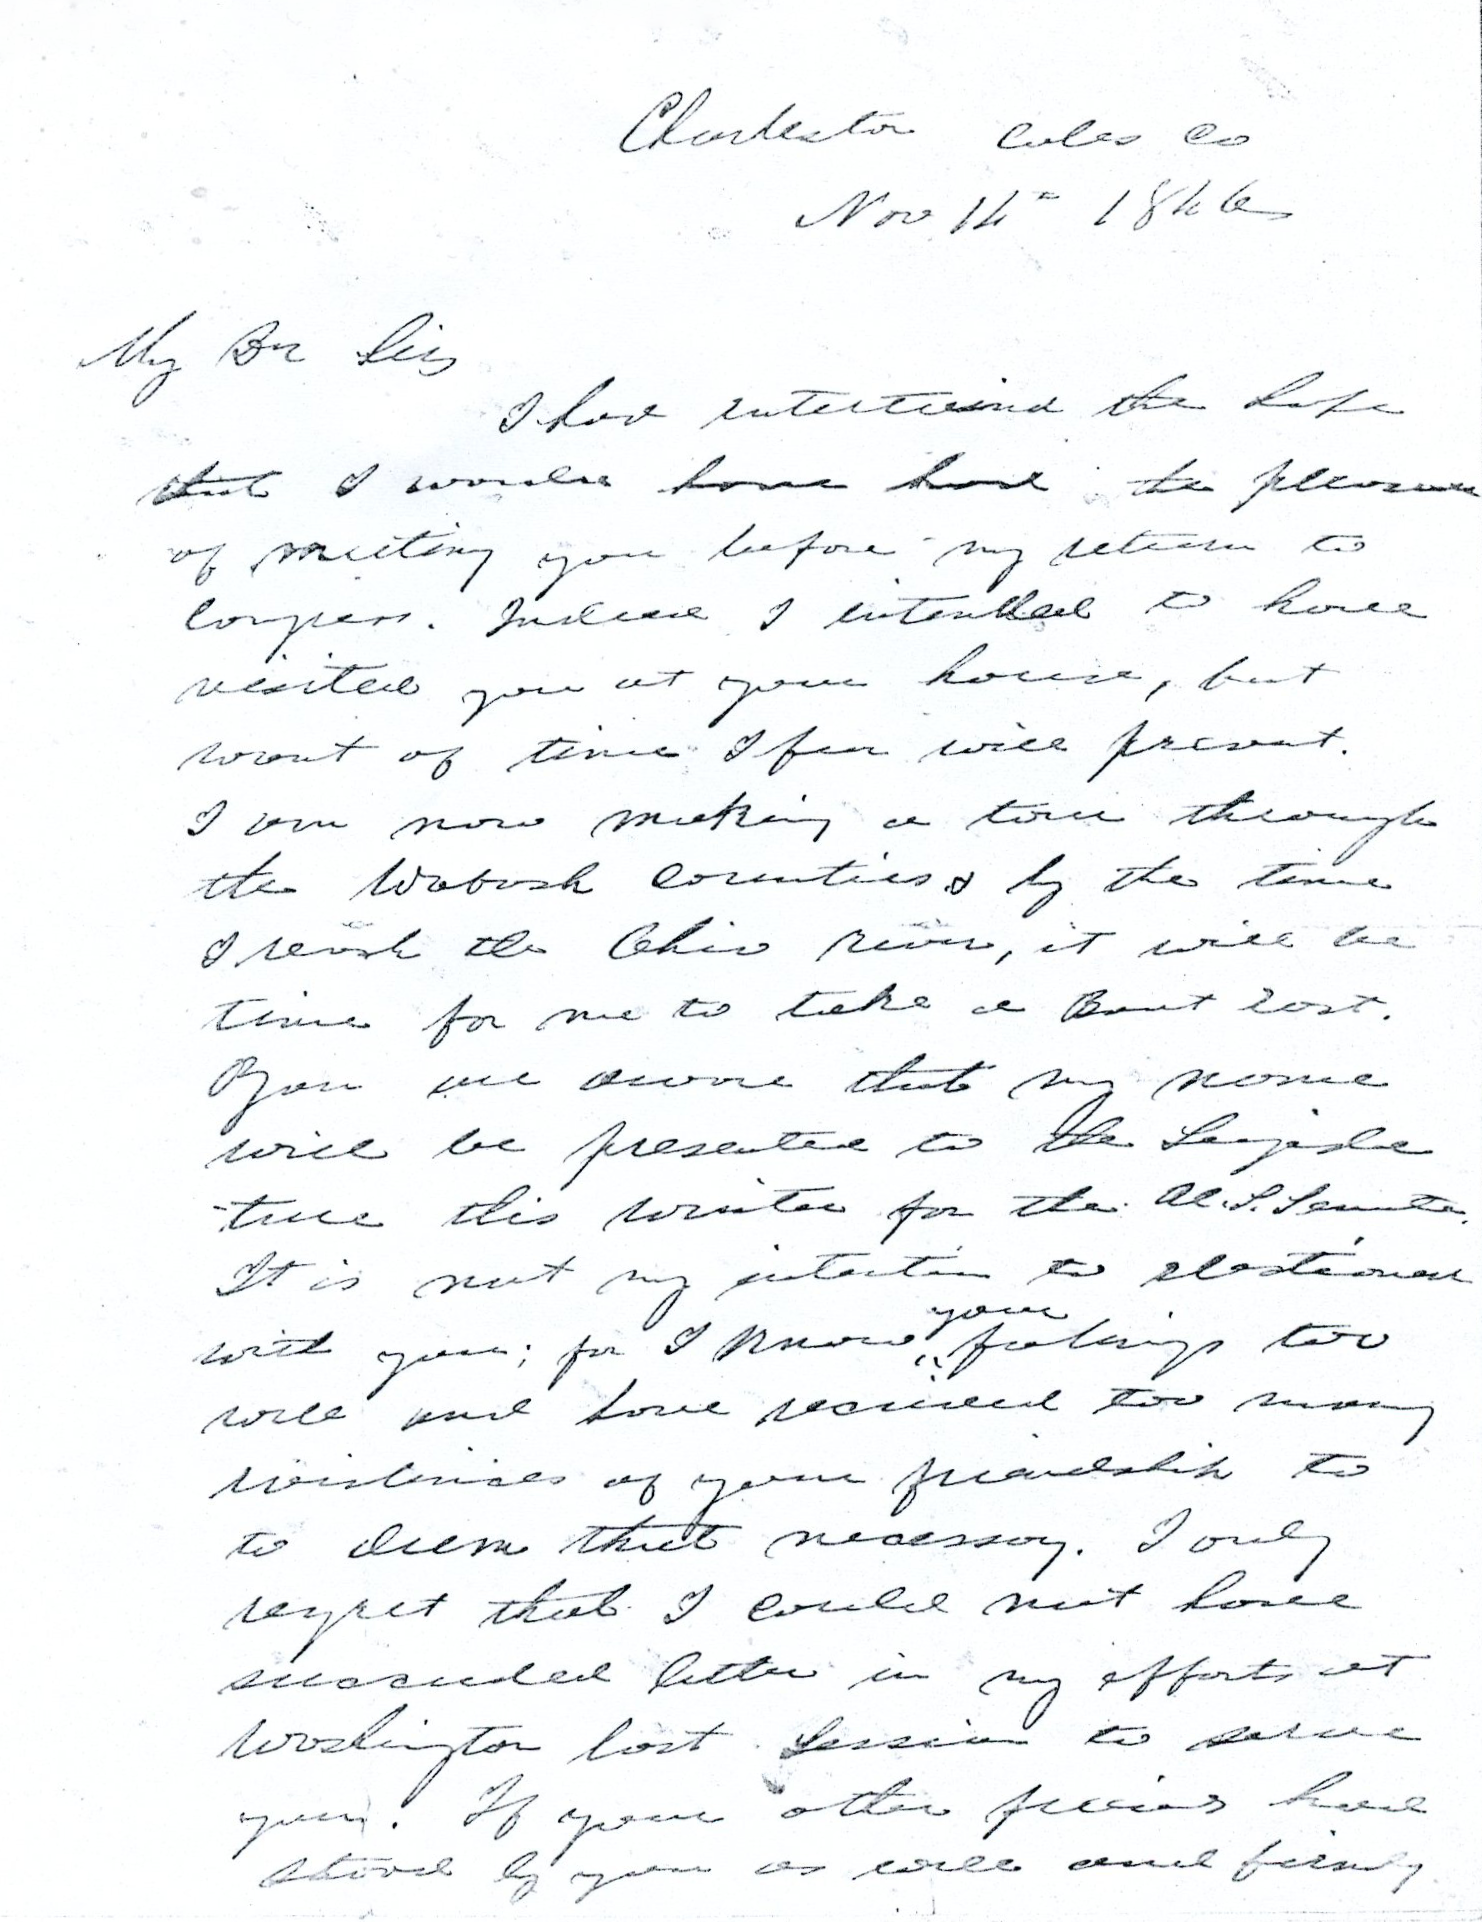 Charleston Coles Co
Nov 14th 1846
My Dr Sir
I had entertained the hope
that I would have had the pleasure
of meeting you before my return to
Congress. Indeed I intended to have
visited you at your house, but
want of time I fear will prevent.
I am now making a tour through
the Wabash Counties & by the time
I reach the Ohio river, it will be
time for me to take a Boat East.
You are aware that my name
will be presented to the Legisla
-ture this winter for the U.S. Senate.
It is not my intention to electioneer
with you; for I know your feelings too
well and have received too many
evidences of your friendship to
to deem that necessary. I only
regret that I could not have
succeeded better in my efforts at
Washington last Session to serve
you. If your other friends had
stood by you as well and firmly